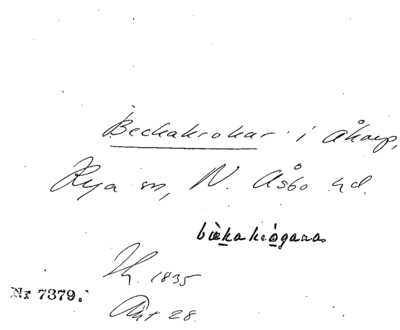 Beckakrokar i Åkarp,
Rya sn, N. Åsbo hd.
Nr 7379.
Akt 28.
1835